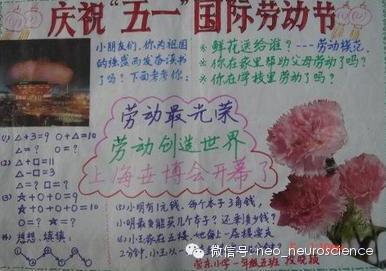 庆祝“五一”国际劳动节
小朋友们，你为祖国
的强盛而发奋读书
了吗？下面考考你：
※ 鲜花送给谁？---劳动模范.
※ 你在家里帮助父母劳动了吗？
※ 你在学校里劳动了吗？
劳动最光荣
劳动创造世界
上海世博会开幕了
(1) △+3=9 ○+△=10
△=? ○=?
(2) △-□=3
△+□=11
△=? □=?
(3) ☆+○+○=10
☆+○+○+○=10
○=? ☆=?
(4) 想想，填填：
(5)小明有1元钱，每个本子3角钱，
小明最多能买几个本子？还剩多少钱？
微信号: neo_neuroscience